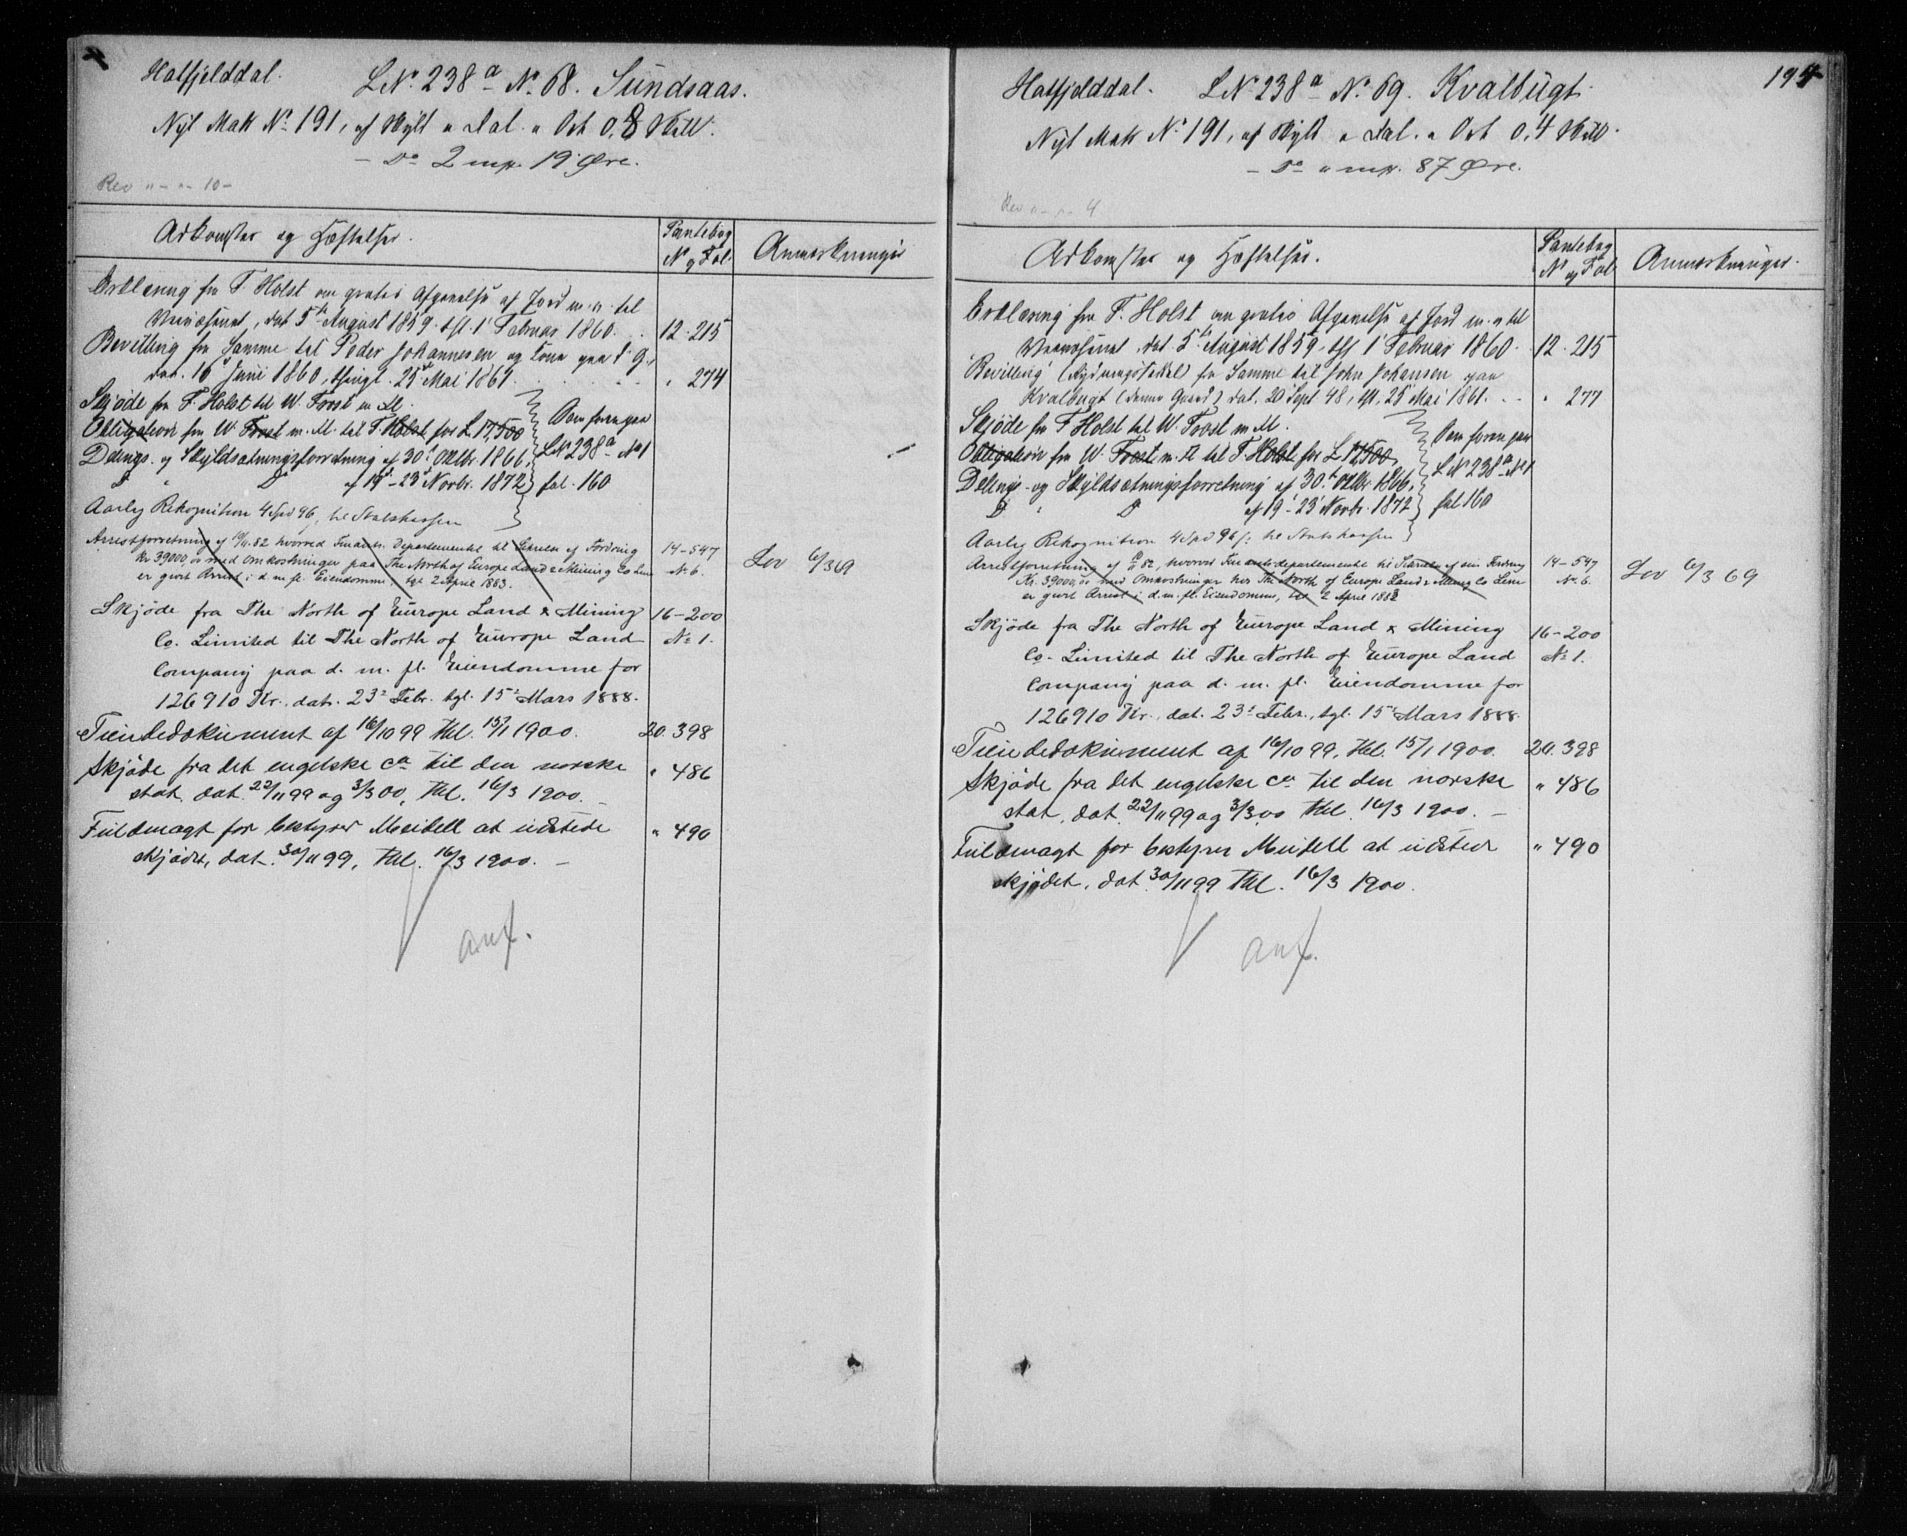 Hatfjelddal. LNo 238a No 68. Sundsaas.
Nyt Matr No 191, af Skyld " Dal. " Ort 0,8 Skill.
- Do 2 mrk. 19 Øre.
Rev " - " - 10 -
Adkomster og Hæftelser.
Pantebog
No og Fol.
Anmærkninger
Erklæring fra F. Holst om gratis Afgivelse af Jord m. v. til
Veivæsenet, dat. 5te August 1859, tgl. 1' Februar 1860.
12. 215
Bevilling fra Samme til Peder Johannesen og Kone paa d. G.,
dat. 16' Juni 1860, thingl. 25de Mai 1861.
" 274
Skjøde fra F. Holst til W. Frost m. Fl.
Obligation fra W. Frost m. Fl. til F. Holst for L 17,500
Delings- og Skyldsætningsforretning af 30' Oktbr. 1866,
D " D af 19'-23' Novbr. 1872
Som foran paa
LNo 238a No 1
fol. 160
Aarlig Rekognition 4 Spd 96, til Statskassen
Arrestforretning af 10/11.82 hvorved Finants Departementet til Sikkrelse af Fordring
Kr. 39000,00 med Omkostninger paa The North of Europe Land & Mining Co Lim
er gjort Arrest i d. m. fl. Eiendomme, tgl. 2 April 1883.
14-547
No 6.
Lov 6/3 69
Skjøde fra The North of Europe Land & Mining
Co. Limited til The North of Europe Land
Company paa d. m. fl. Eiendomme for
126910 Kr., dat. 23' Febr. tgl. 15' Mars 1888.
16-200
No 1.
Tiendedokument af 16/10 99 thl. 15/1 1900.
20. 398
Skjøde fra det engelske co til den norske
stat, dat. 22/11 99 og 3/3 00, thl. 16/3 1900.
" 486
Fuldmagt for bestyrer Meidell at udstede
skjødet, dat. 30/11 99, thl. 16/3 1900. -
" 490
anf.
194
Hatfjelddal. LNo 238a No 69. Kvalbugt.
Nyt Matr No 191, af Skyld " Dal. " Ort 0,4 Skill.
- Do " mrk. 87 Øre.
Rev " - " - 4
Adkomster og Hæftelser.
Pantebog
No og Fol
Anmærkninger.
Erklæring fra F. Holst om gratis Afgivelse af Jord m. v. til
Veivæsenet, dat. 5te August 1859, tgl. 1' Februar 1860.
12. 215
Bevilling (Rydningsseddel) fra Samme til John Johansen paa
Kvalbugt (denne Gaard) dat. 20 Sept. 48, tgl. 25' Mai 1861.
" 277
Skjøde fra F Holst til W. Frost m Fl.
Obligation fra W. Frost m. Fl til F. Holst for L 17,500
Delings- og Skyldsætningsforretning af 30' Oktbr. 1866,
D " D af 19'-23' Novbr. 1872
Som foran paa
LNo 238a No 1
fol 160
Aarlig Rekognition 4 Spd 96 /: til Statskassen
Arrestforretning af 82, hvorved Finantsdepartementet til Sikkrelse af sin Fordring
Kr. 39000,00 med Omkostninger hos The North of Europe Land & Mining Co Lim
er gjort Arrest i d. m. fl. Eiendomme, tgl 2 April 1883
14-547
No 6.
Lov 6/3 69
Skjøde fra The North of Europe Land & Mining
Co. Limited til The North of Europe Land
Company paa d. m. fl. Eiendomme for
126910 Kr., dat. 23' Febr., tgl. 15' Mars 1888.
16-200
No 1.
Tiendedokument af 16/10 99, thl. 15/1 1900.
20. 398
Skjøde fra det engelske co til den norske
stat, dat. 22/11 99 og 3/3 00 thl. 16/3 1900. -
" 486
Fuldmagt for bestyrer Meidell at udstede
skjødet, dat. 30/11 99 thl. 16/3 1900.
" 490
anf.